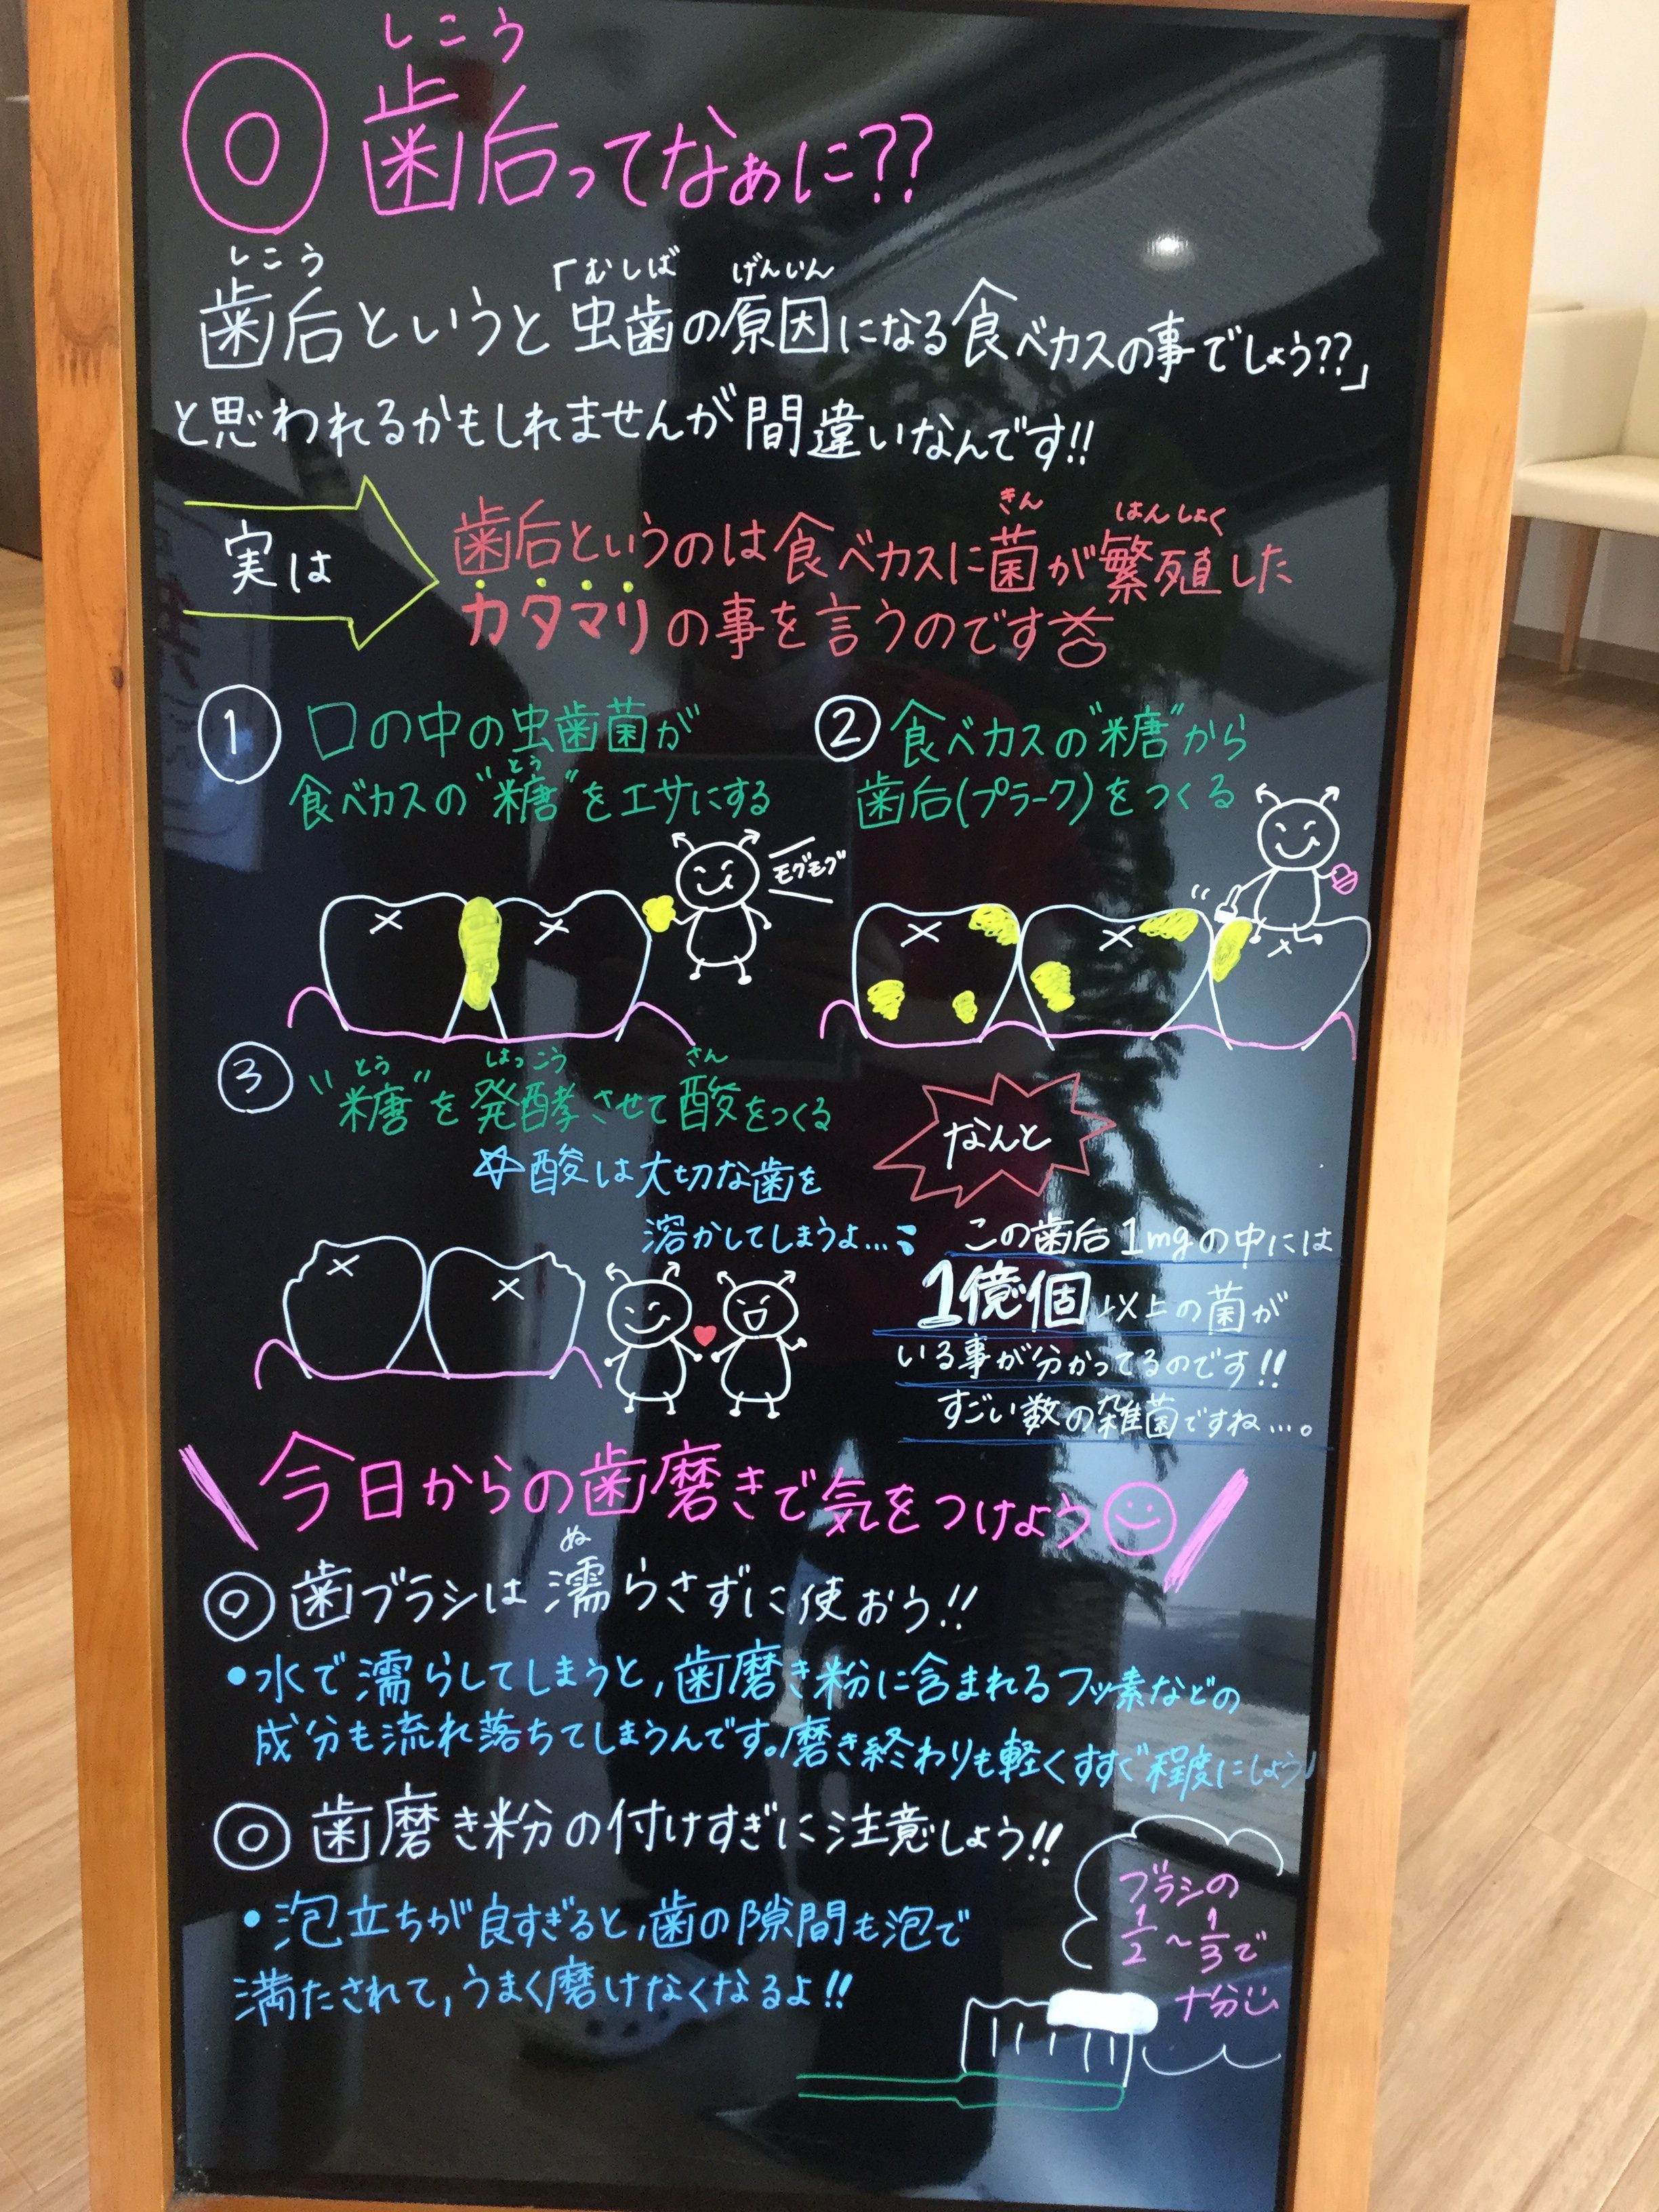 しこう
◎ 歯后ってなぁに??
しこう 「むしば げんいん
歯后というと 虫歯の原因になる食べカスの事でしょう??」
と思われるかもしれませんが間違いなんです!!
実は
きん はんしょく
歯后というのは食べカスに菌が繁殖した
カタマリの事を言うのです
① 口の中の虫歯菌が
とう
食べカスの"糖"をエサにする
モグモグ
② 食べカスの"糖"から
歯后(プラーク)をつくる
とう はっこう さん
③ "糖"を発酵させて酸をつくる
☆酸は大切な歯を
溶かしてしまうよ…
なんと
この歯后1mgの中には
1億個以上の菌が
いる事が分かってるのです!!
すごい数の雑菌ですね…。
今日からの歯磨きで気をつけよう
ぬ
◎歯ブラシは濡らさずに使おう!!
•水で濡らしてしまうと,歯磨き粉に含まれるフッ素などの
成分も流れ落ちてしまうんです。磨き終わりも軽くすすぐ程度にしよう♪
◎歯磨き粉の付けすぎに注意しよう!!
•泡立ちが良すぎると,歯の隙間も泡で
満たされて,うまく磨けなくなるよ!!
ブラシの
1/2~1/3で
十分